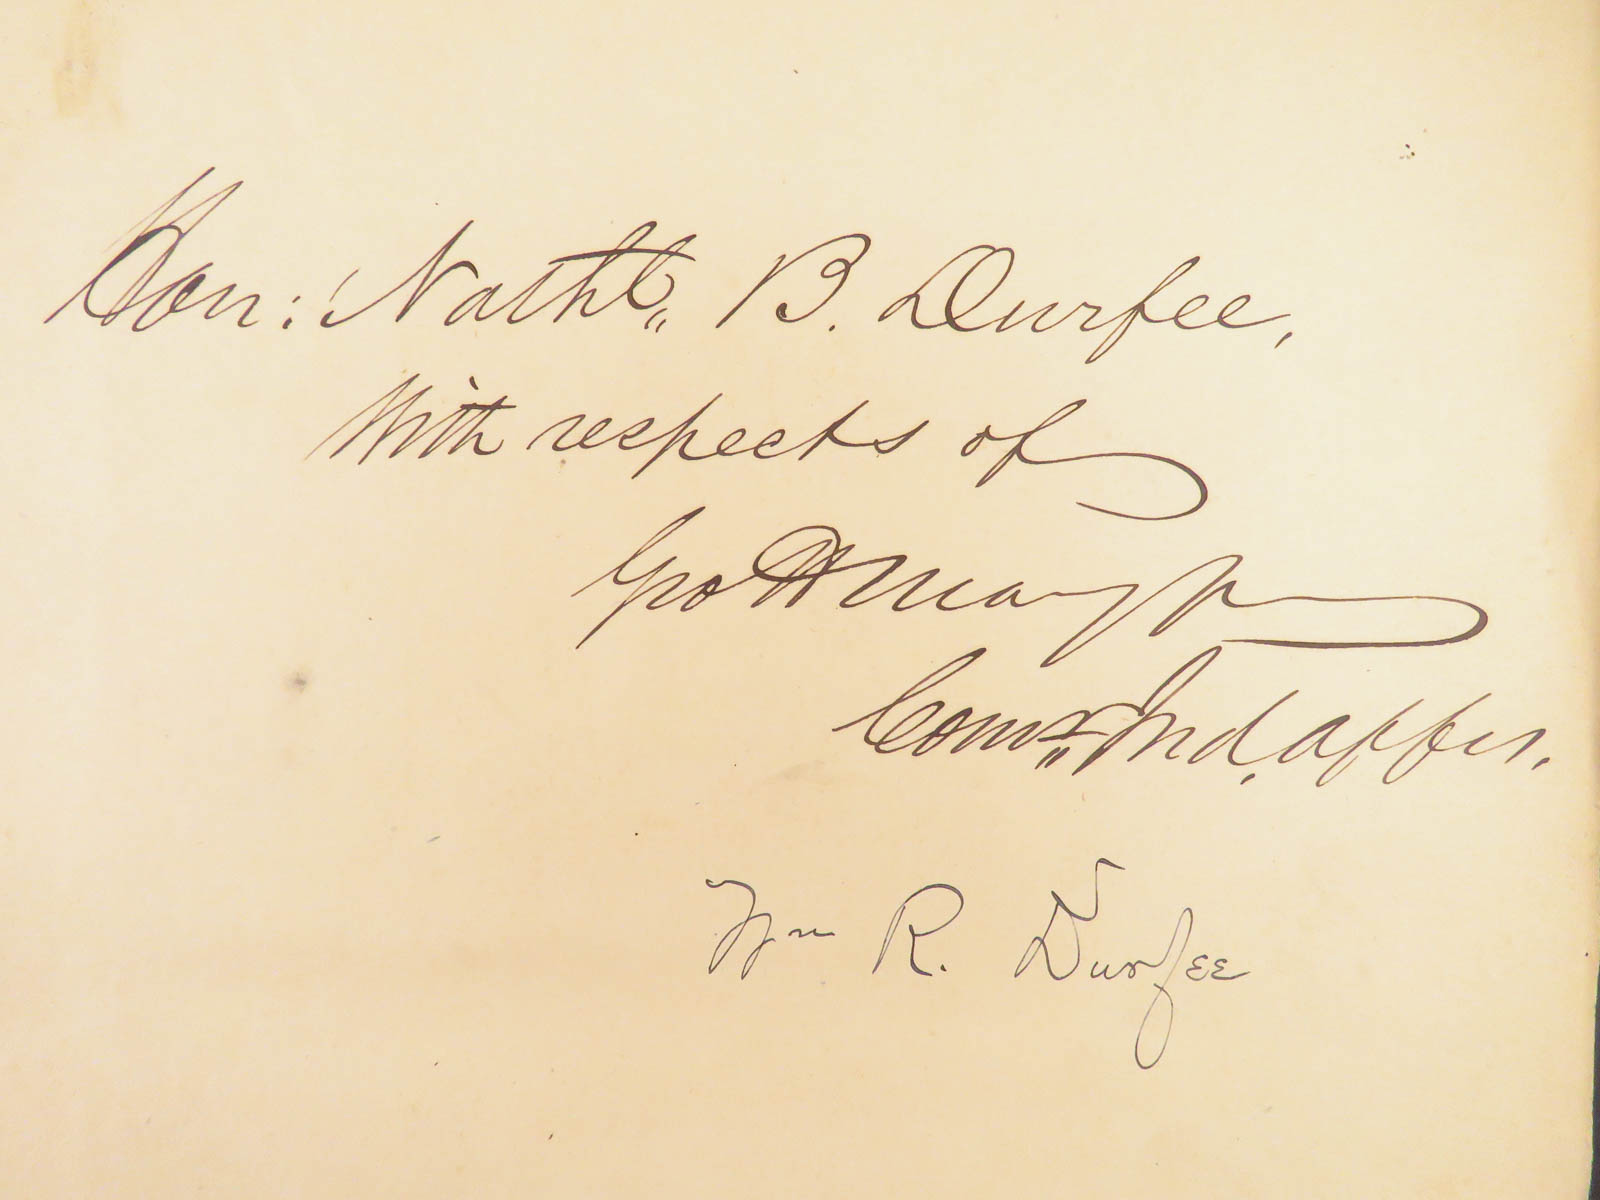 Hon: Nathl,, B. Durfee,
With respects of
Geo W Manypenny
Comr,, Ind, affrs.
Wm R. Durfee